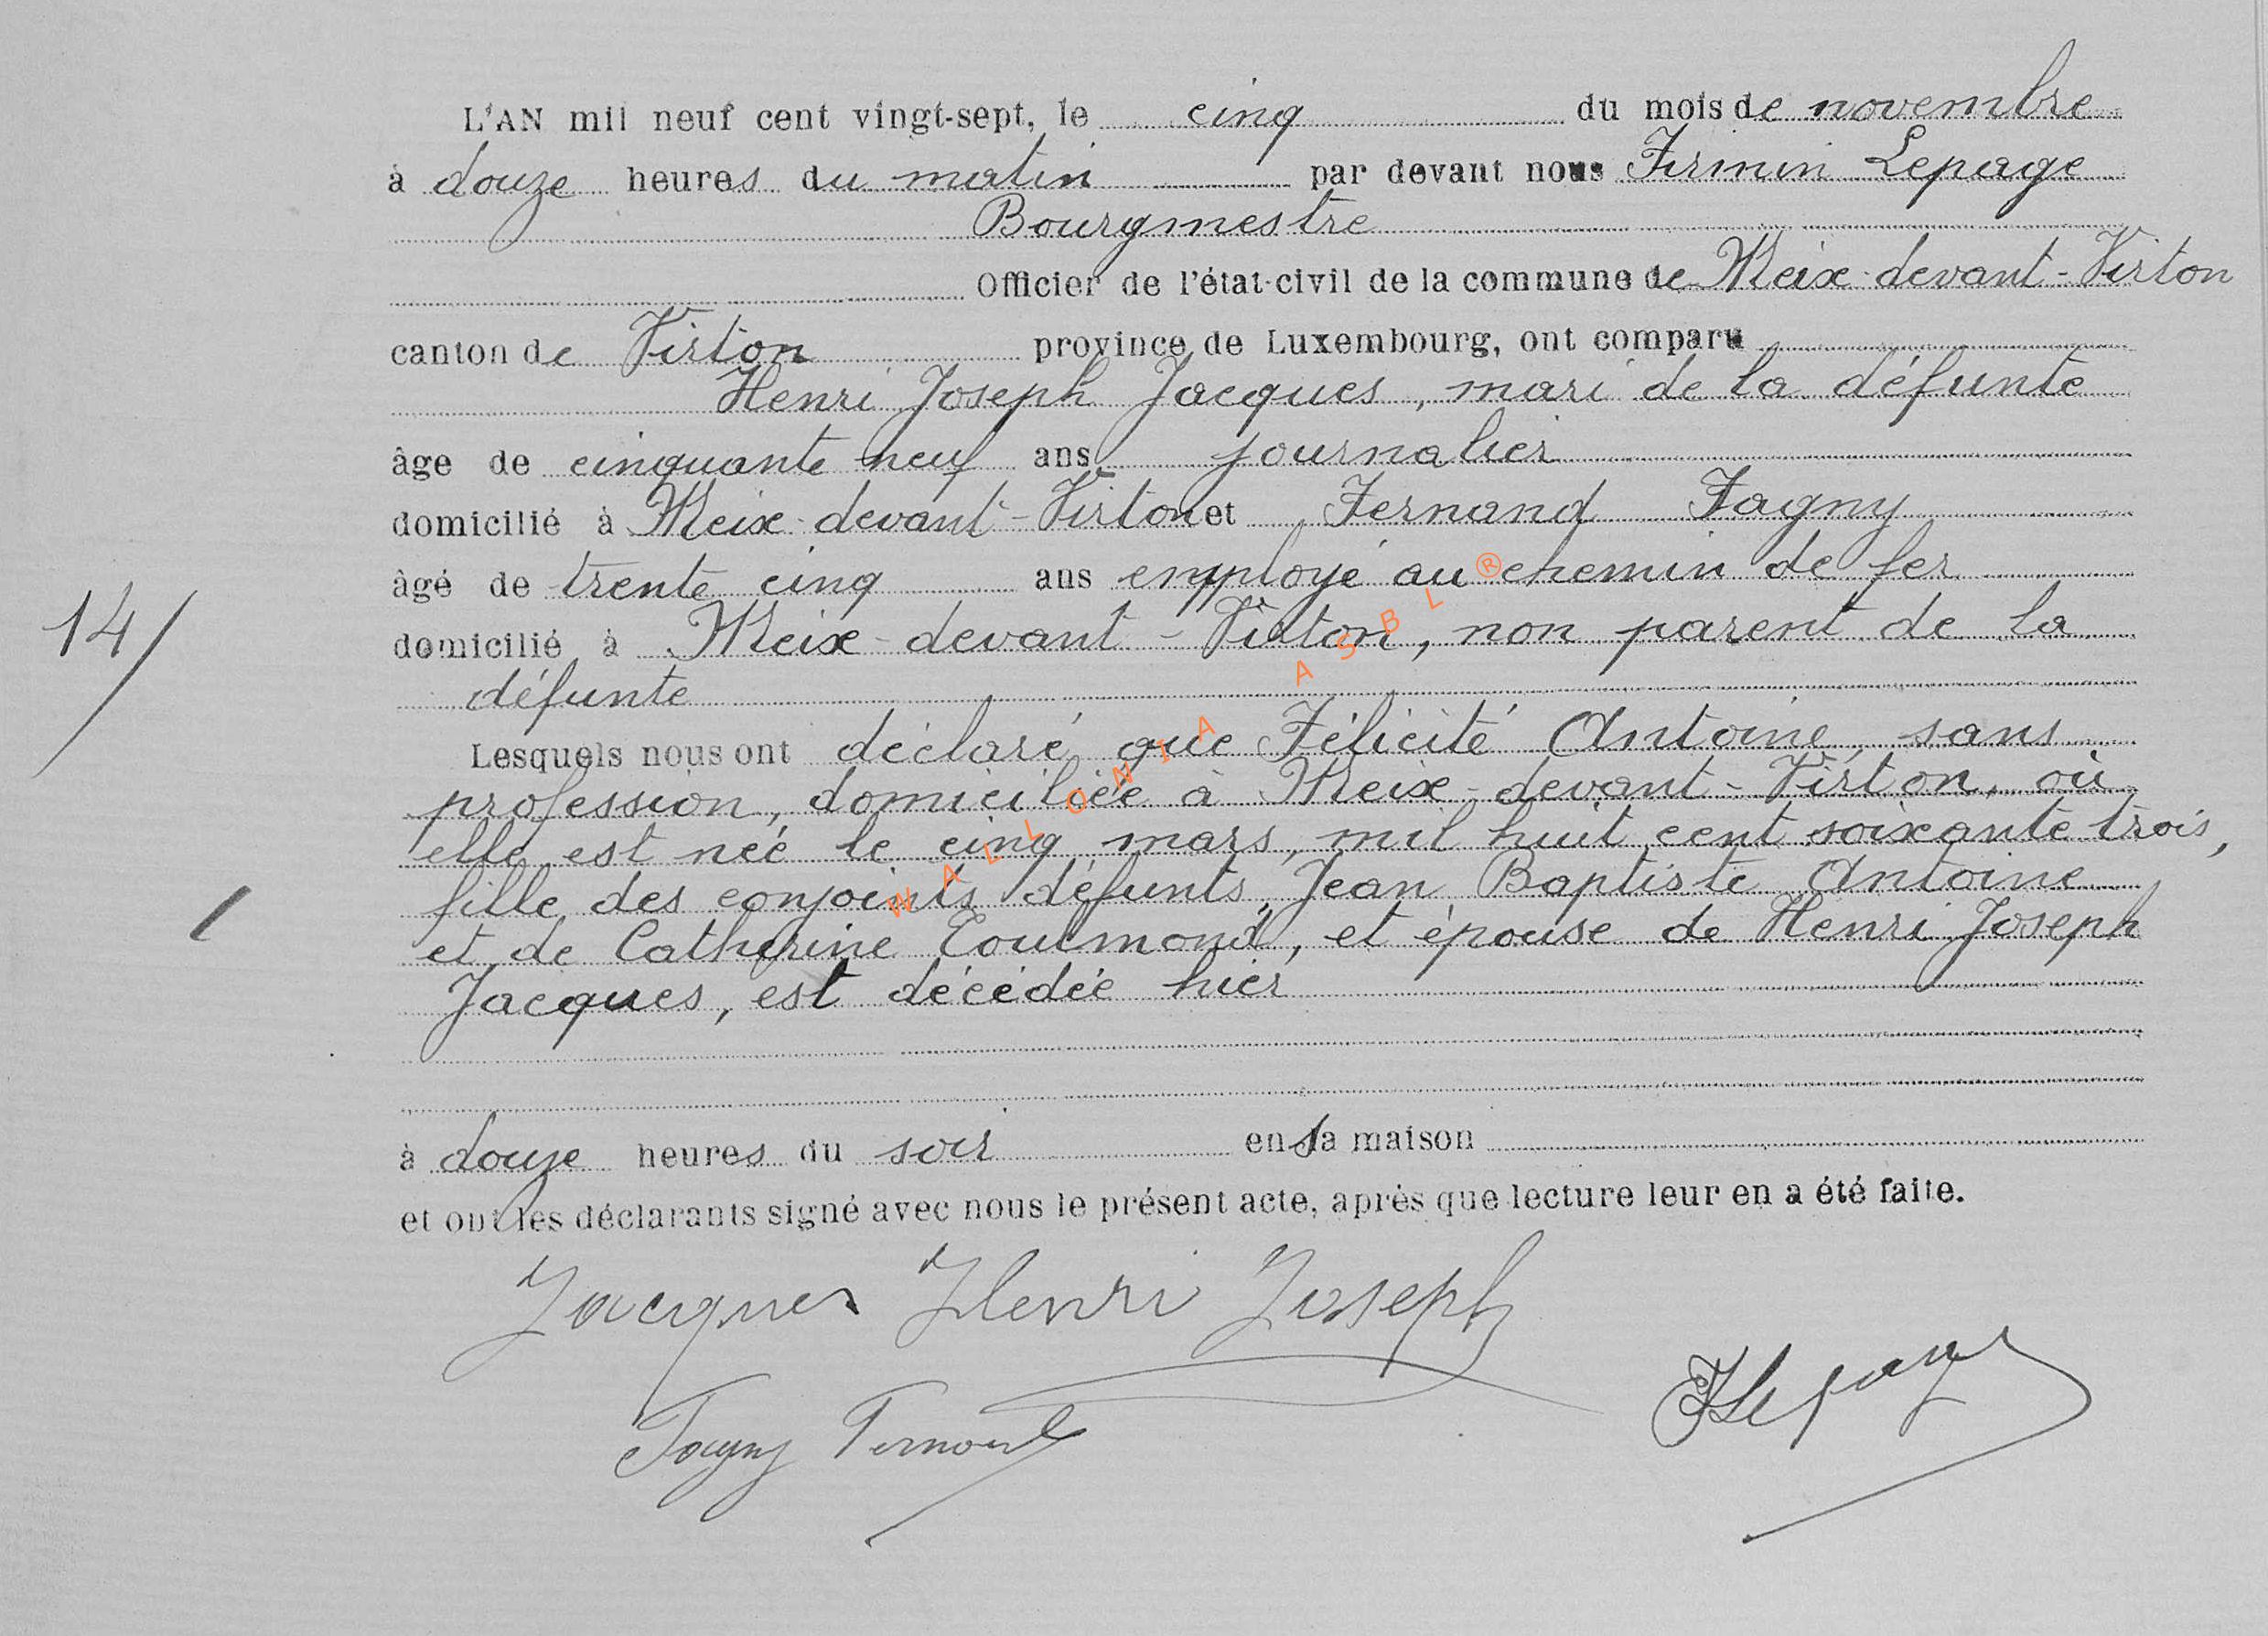 L'AN mil neuf cent vingt-sept, le cinq du mois de novembre
à douze heures du matin par devant nous Firmin Lepage
Bourgmestre
Officier de l'état-civil de la commune de Meix-devant-Virton
canton de Virton province de Luxembourg, ont comparu
Henri Joseph Jacques, mari de la défunte
âge de cinquante neuf ans journalier
domicilié à Meix-devant-Virton et Fernand Fagny
âgé de trente cinq ans employé au chemin de fer
14/
domicilié à Meix-devant-Virton, non parent de la
défunte
Lesquels nous ont déclaré que Félicité Antoine, sans
profession, domiciliée à Meix-devant-Virton, où
elle est née le cinq mars, mil huit cent soixante trois,
fille des conjoints défunts, Jean Baptiste Antoine
et de Catherine Toulmond, et épouse de Henri Joseph
Jacques, est décédée hier
à douze heures du soir en sa maison
et ont les déclarants signé avec nous le présent acte, après que lecture leur en a été faite.
Jacques Henri Joseph
FLepage
Fagny Fernand
WALLONIA ASBL ®